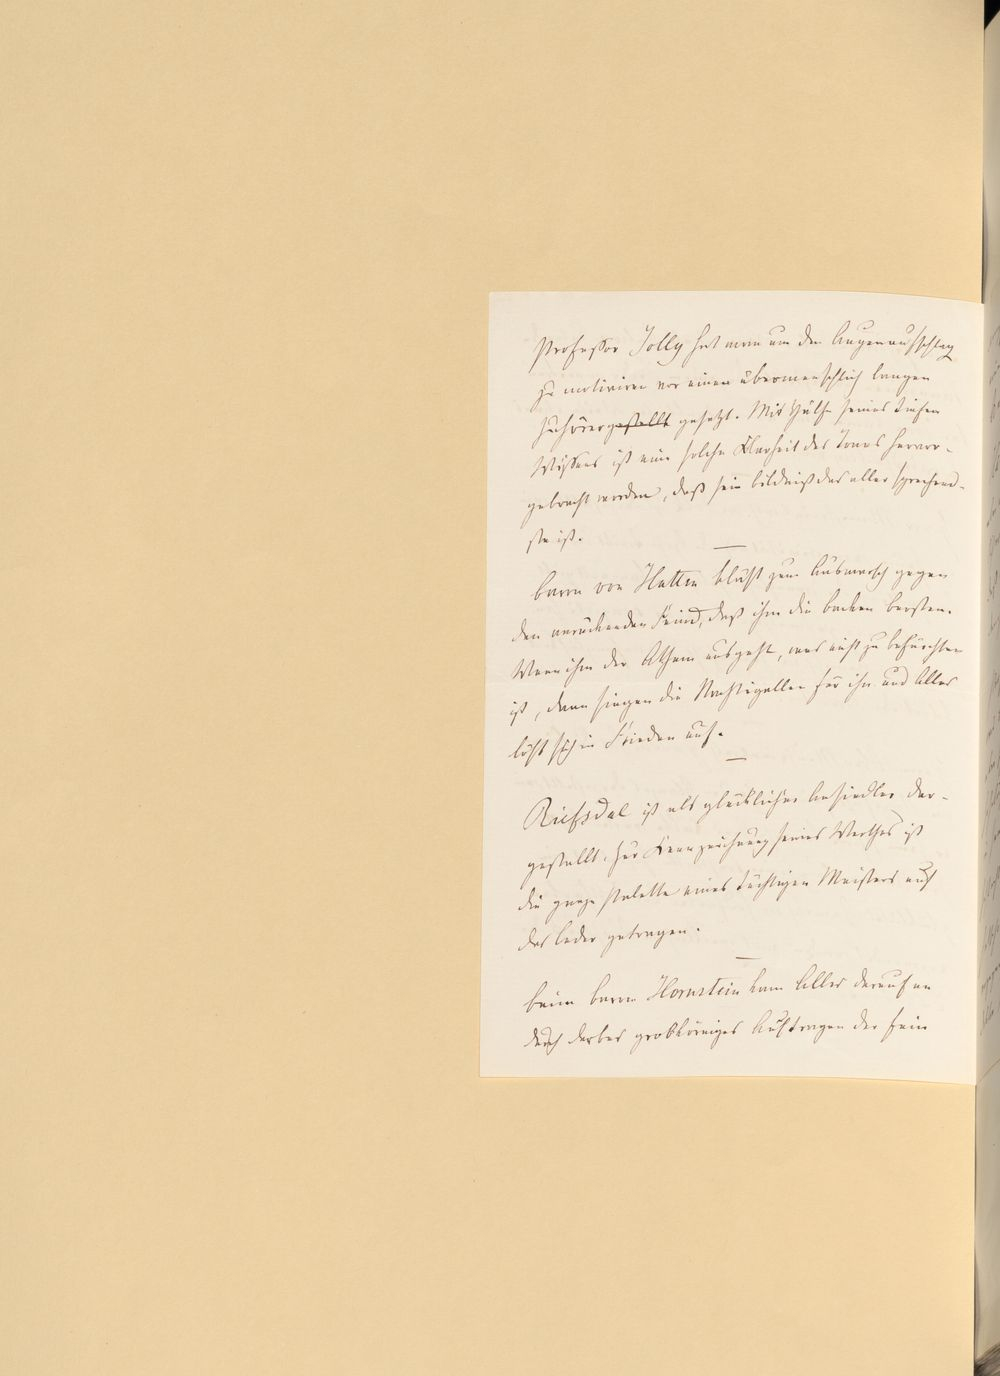 Professor Jolly hat man um den Augenaufschlag
zu motiviren vor einen übermenschlich langen
Zuhörer gestellt gesetzt. Mit Hülfe seines tiefen
Wissens ist eine solche Klarheit des Tones hervor-
gebracht worden, daß sein Bildniß das aller sprechend-
ste ist.
—
Baron von Hutten bläst zum Ausmarsch gegen
den anrückenden Feind, daß ihm die Backen bersten.
Wenn ihm der Athem ausgeht, was nicht zu befürchten
ist, dann singen die Nachtigallen für ihn und Alles
löst sich in Frieden auf.
—
ist als glücklicher Ansiedler dar-
gestellt. Zur Kennzeichnung seines Werthes ist
die ganze Palette eines tüchtigen Meisters auf
das Leder getragen.
—
Beim Baron Hornstein kam Alles darauf an
durch derbes grobkörniges Auftragen der fein